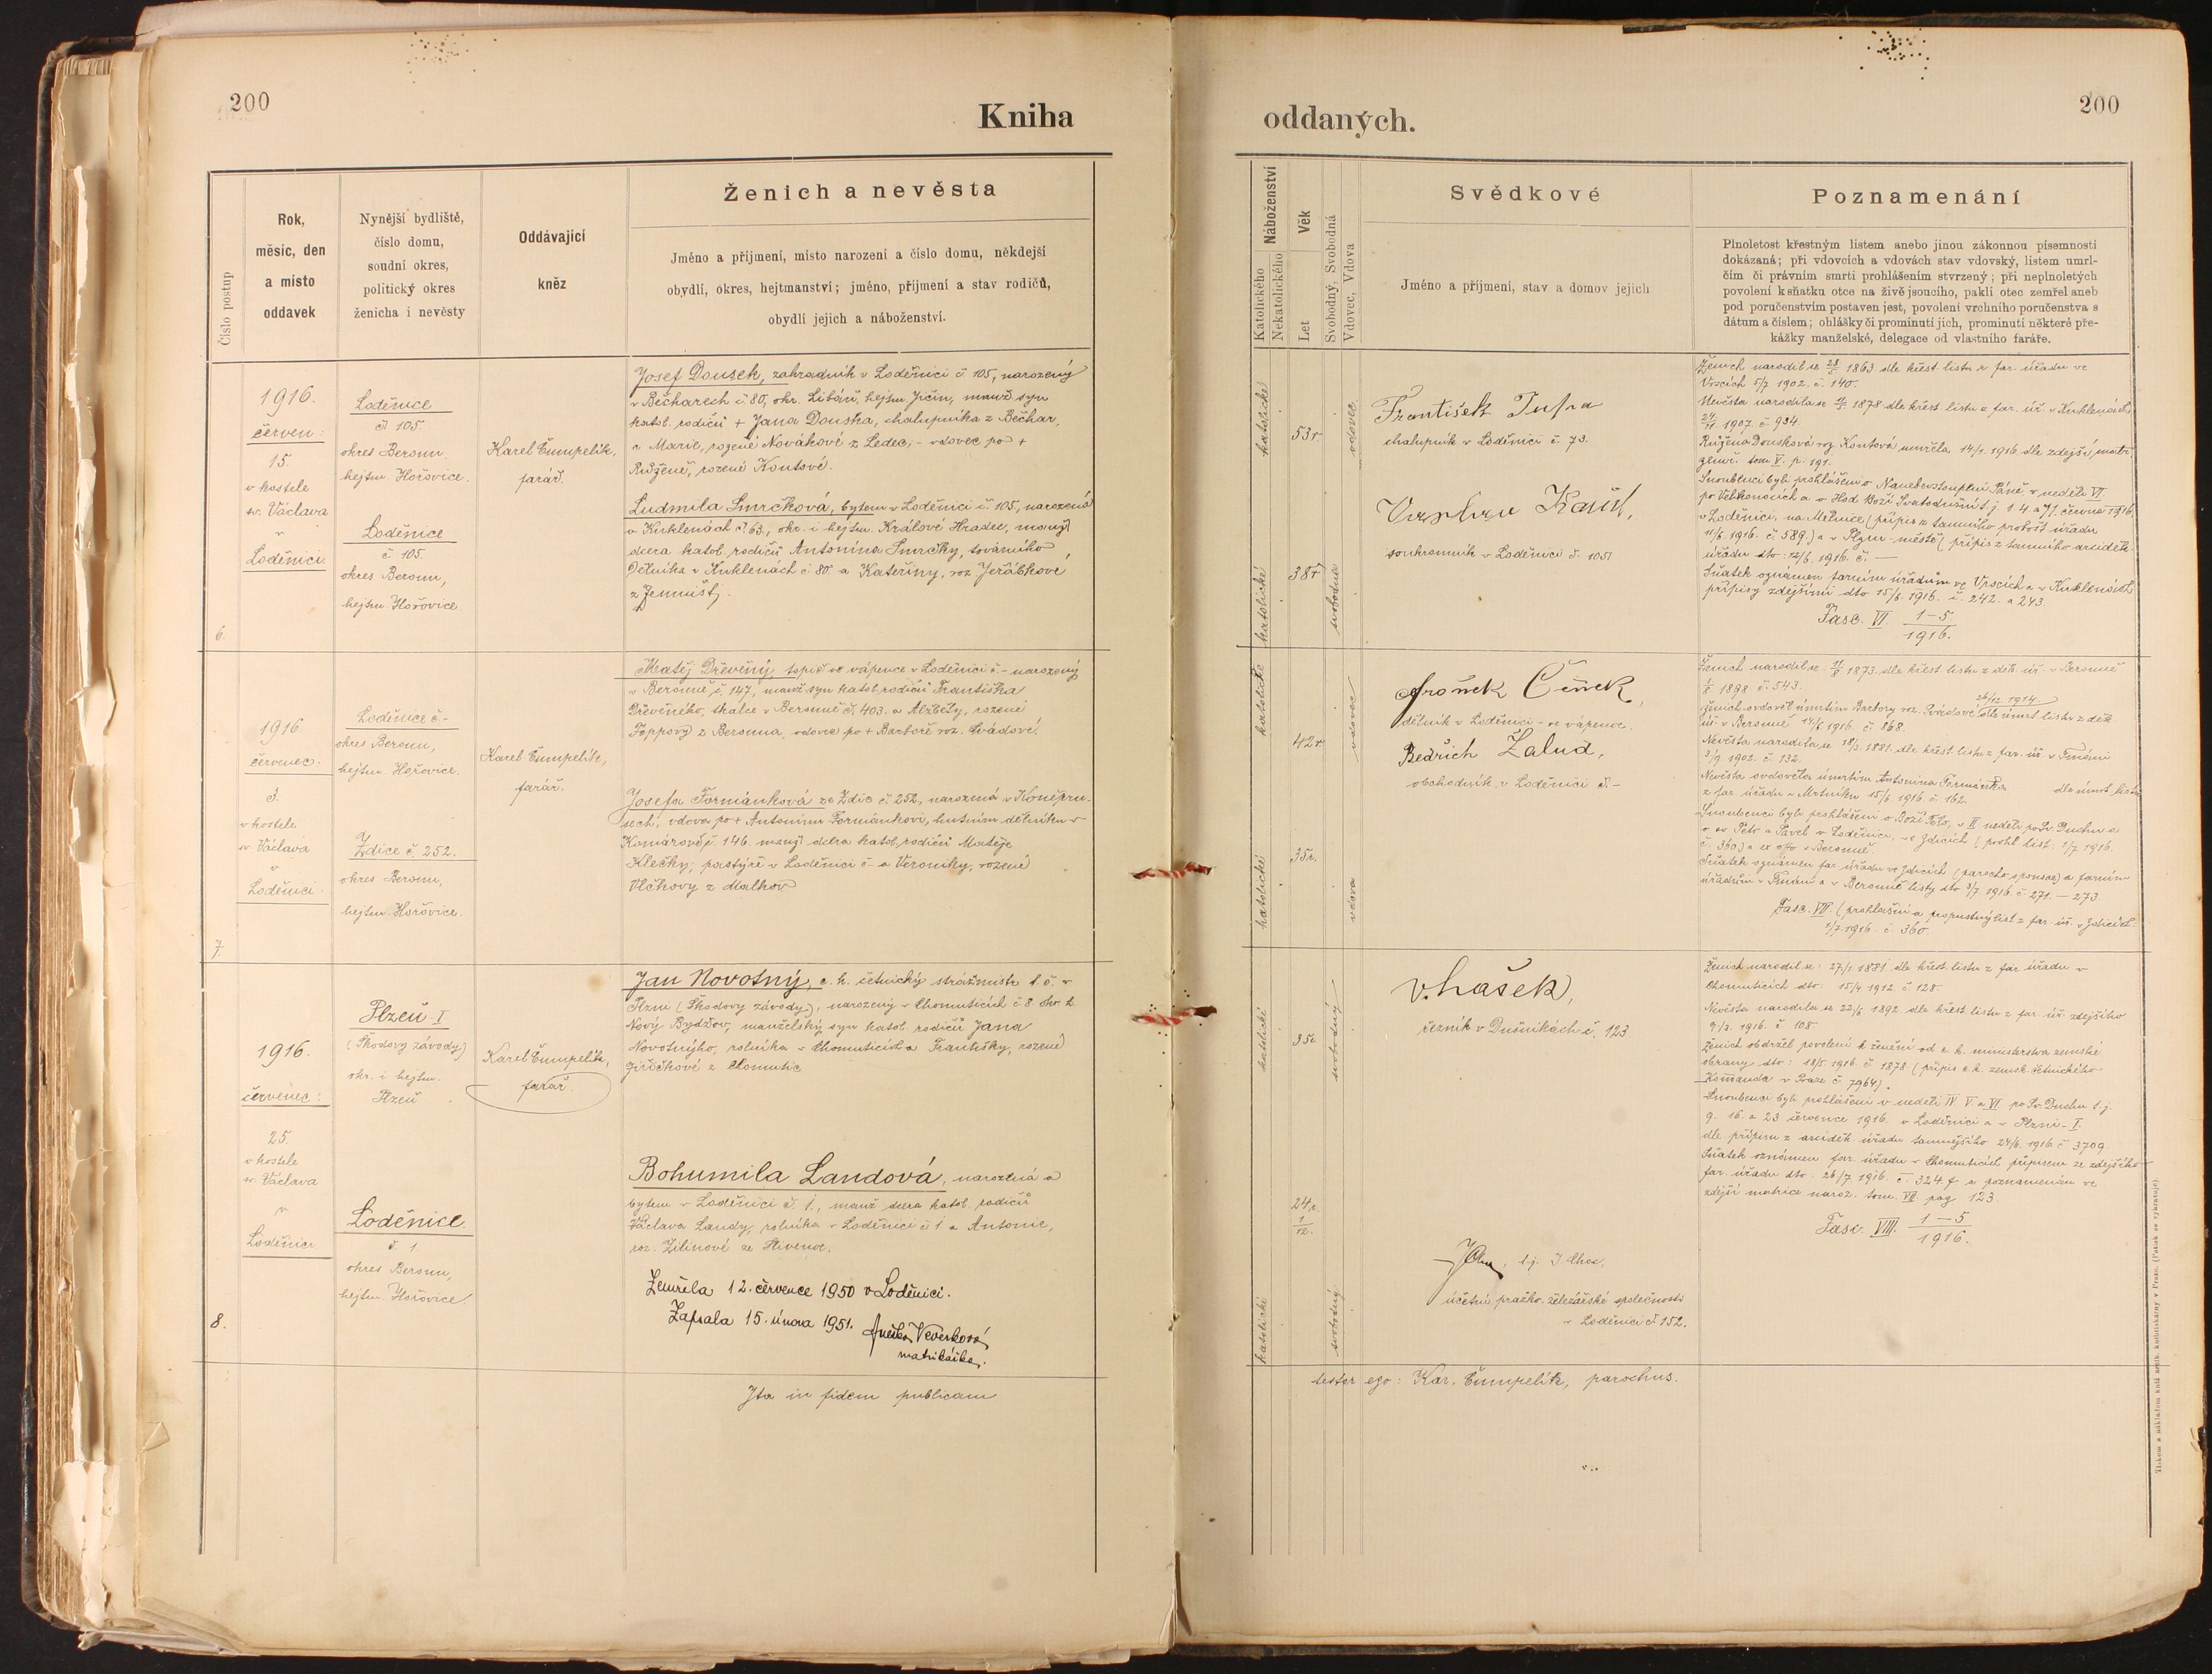 200
Kniha
oddaných.
200
Číslo postup
Rok,
měsíc, den
a místo
oddavek
Nynější bydliště,
číslo domu,
soudní okres,
politický okres
ženicha i nevěsty
Oddávající
kněz
Ženich a nevěsta
Jméno a příjmení, místo narození a číslo domu, někdejší
obydlí, okres, hejtmanství; jméno, příjmení a stav rodičů,
obydlí jejich a náboženství.
Náboženství
Katolického
Nekatolického
Věk
Let
Svobodný, Svobodná
Vdovec, Vdova
Svědkové
Jméno a příjmení, stav a domov jejich
Poznamenání
Plnoletost křestným listem anebo jinou zákonnou písemností
dokázaná; při vdovcích a vdovách stav vdovský, listem umrl-
čím či právním smrti prohlášením stvrzený; při neplnoletých
povolení k sňatku otce na živě jsoucího, pakli otec zemřel aneb
pod poručenstvím postaven jest, povolení vrchního poručenstva s
dátum a číslem; ohlášky či prominutí jich, prominutí některé pře-
kážky manželské, delegace od vlastního faráře.
6.
1916.
červen:
15.
v kostele
sv. Václava
v
Loděnici.
Loděnice
č. 105
okres Beroun,
hejtm. Hořovice.
Loděnice
č. 105.
okres Beroun,
hejtm. Hořovice.
Karel Čumpelík,
farář.
Josef Dousek, zahradník v Loděnici č. 105, narozený
v Bečharech č. 80, okr. Libáň, hejtm. Jičín, manž. syn
katol. rodičů + Jana Douska, chalupníka z Bečhar,
a Marie, rozené Novákové z Ledec; - vdovec po +
Růženě, rozené Koutové.
Ludmila Smrčková, bytem v Loděnici č. 105, narozená
v Kuklenách č. 63, okr. i hejtm. Králové Hradec, manž.
dcera katol. rodičů Antonína Smrčky, továrního
dělníka v Kuklenách č. 80. a Kateřiny, roz. Jeřábkové
z
katolické
53 r.
vdovec
katolické
38 r.
svobodná
František
chalupník v Loděnici č. 73.
soukromník v Loděnici č. 105
Ženich narodil se 1863 dle křest. listu z far. úřadu ve
Vrscích 5/7 1902. č. 140.
Nevěsta narodila se 1878 dle křest. listu z far. úř. v Kuklenách
1907. č. 934.
Růžena Dousková roz. Koutová umřela 14/1. 1916. dle zdejší matr.
zemř. tom. V. p. 191.
Snoubenci byli prohlášeni o Nanebevstoupení Páně v neděli VI.
po Velikonocích a o Hod Boží Svatodušní t. j. 1. 4. a 11. června 1916.
v Loděnici, na Mělníce (přípis z tamního probošt. úřadu
11/6. 1916. č. 589.) a v Plzni - městě (přípis z tamního arciděk.
úřadu dto: 12/6. 1916. č. —
Sňatek oznámen farním úřadům ve Vrscích a v Kuklenách
přípisy zdejšími dto 15/6. 1916. č. 242. a 243.
Fasc. VI. 1-5
1916.
7.
1916.
červenec:
3.
v kostele
sv. Václava
v
Loděnici.
Loděnice č. -
okres Beroun,
hejtm. Hořovice.
Zdice č. 252.
okres Beroun,
hejtm. Hořovice.
Karel Čumpelík,
farář.
Matěj Dřevěný, topič ve vápence v Loděnici č. - narozený
v Berouně, č. 147, manž. syn katol. rodičů Františka
Dřevěného, skalce v Berouně č. 403. a Alžběty, rozené
Föppovy z Berouna, vdovec po + Barboře roz. Svádové.
Josefa Formánková ze Zdic č. 252., narozená v Koněpru-
sech, vdova po + Antonínu Formánkovi, hutním dělníku v
Komárově č. 146. manž. dcera katol. rodičů Matěje
Klečky, pastýře v Loděnici č. - a Veroniky, rozené
Vlčkovy z Malkov
katolické
42 r.
vdovec
katolické
35 r.
vdova
Čeněk
dělník v Loděnici - ve vápence.
Bedřich Žalud,
obchodník v Loděnici č. -
Ženich narodil se: 1873. dle křest. listu z děk. úř. v Berouně
1898. č. 543.
26/12. 1914
Ženich ovdověl úmrtím Barbory roz. Svádové dle úmrt. listu z děk.
úř. v Berouně 14/6. 1916. č. 868.
Nevěsta narodila se 18/3. 1881. dle křest. listu z far. úř. v Tmáni
3/9. 1902. č. 132.
Nevěsta ovdověla úmrtím Antonína Formánka dle úmrt. listu
z far. úřadu v Mrtníku 15/6. 1916. č. 162.
Snoubenci byli prohlášeni o Boží Tělo, v III. neděli po Sv. Duchu a
o sv. Petr a Pavel v Loděnici, ve Zdicích (prohl. list: 1/7. 1916.
č. 360) a ex offo v Berouně.
Sňatek oznámen far. úřadu ve Zdicích (parocho sponsae) a farním
úřadům v Tmáni a v Berouně listy dto 3/7. 1916. č. 271. — 273.
Fasc. VII. (prohlášení a propustný list z far. úř. v Zdicích
1/7. 1916. č. 360.
8.
1916.
červenec:
25.
v kostele
sv. Václava
v
Loděnici
Plzeň I
(Škodovy závody)
okr. i hejtm.
Plzeň
Loděnice
č. 1
okres Beroun,
hejtm. Hořovice.
Karel Čumpelík,
farář.
Jan Novotný, c. k. četnický strážmistr t. č. v
Plzni (Škodovy závody), narozený v Chomuticích č. 8. okr. t.
Nový Bydžov, manželský syn katol. rodičů Jana
Novotnýho, rolníka v Chomuticích a Františky, rozené
Jiřičkové z Chomutic
Bohumila Landová, narozená a
bytem v Loděnici č. 1., manž. dcera katol. rodičů
Václava Landy, rolníka v Loděnici č. 1 a Antonie,
roz. Zilinové ze Slivence.
Zemřela 12. července 1950 v Loděnici.
Zapsala 15. února 1951. Anežka Veverková
matrikářka.
katolické
35 r.
svobodný
24 r.
1
12.
katolické
svobodný
V. hašek,
řezník v Dušníkách č. 123
účetní pražsko. železářské společnosti
v Loděnici č. 152.
Ženich narodil se: 27/1. 1881. dle křest. listu z far. úřadu v
Chomuticích dto: 15/4. 1912. č. 128.
Nevěsta narodila se 22/6. 1892. dle křest. listu z far. úř. zdejšího
9/3. 1916. č. 108.
Ženich obdržel povolení k ženění od c. k. ministerstva zemské
obrany dto: 18/5. 1916. č. 1878 (přípis c. k. zemsk. četnického
Komanda v Praze č. 7964).
Snoubenci byli prohlášeni v neděli IV. V. a VI. po Sv. Duchu t. j.
9. 16. a 23. července 1916. v Loděnici a v Plzni - I.
dle přípisu z arciděk. úřadu tamnějšího 24/6. 1916. č. 3709
Sňatek oznámen far. úřadu v Chomuticích přípisem ze zdejšího
far. úřadu dto: 26/7. 1916. č. 324. f a poznamenán ve
zdejší matrice naroz. tom. VII. pag. 123.
Fasc. VIII. 1 — 5
1916.
Ita in fidem publicam
testor ego: Kar. Čumpelík, parochus.